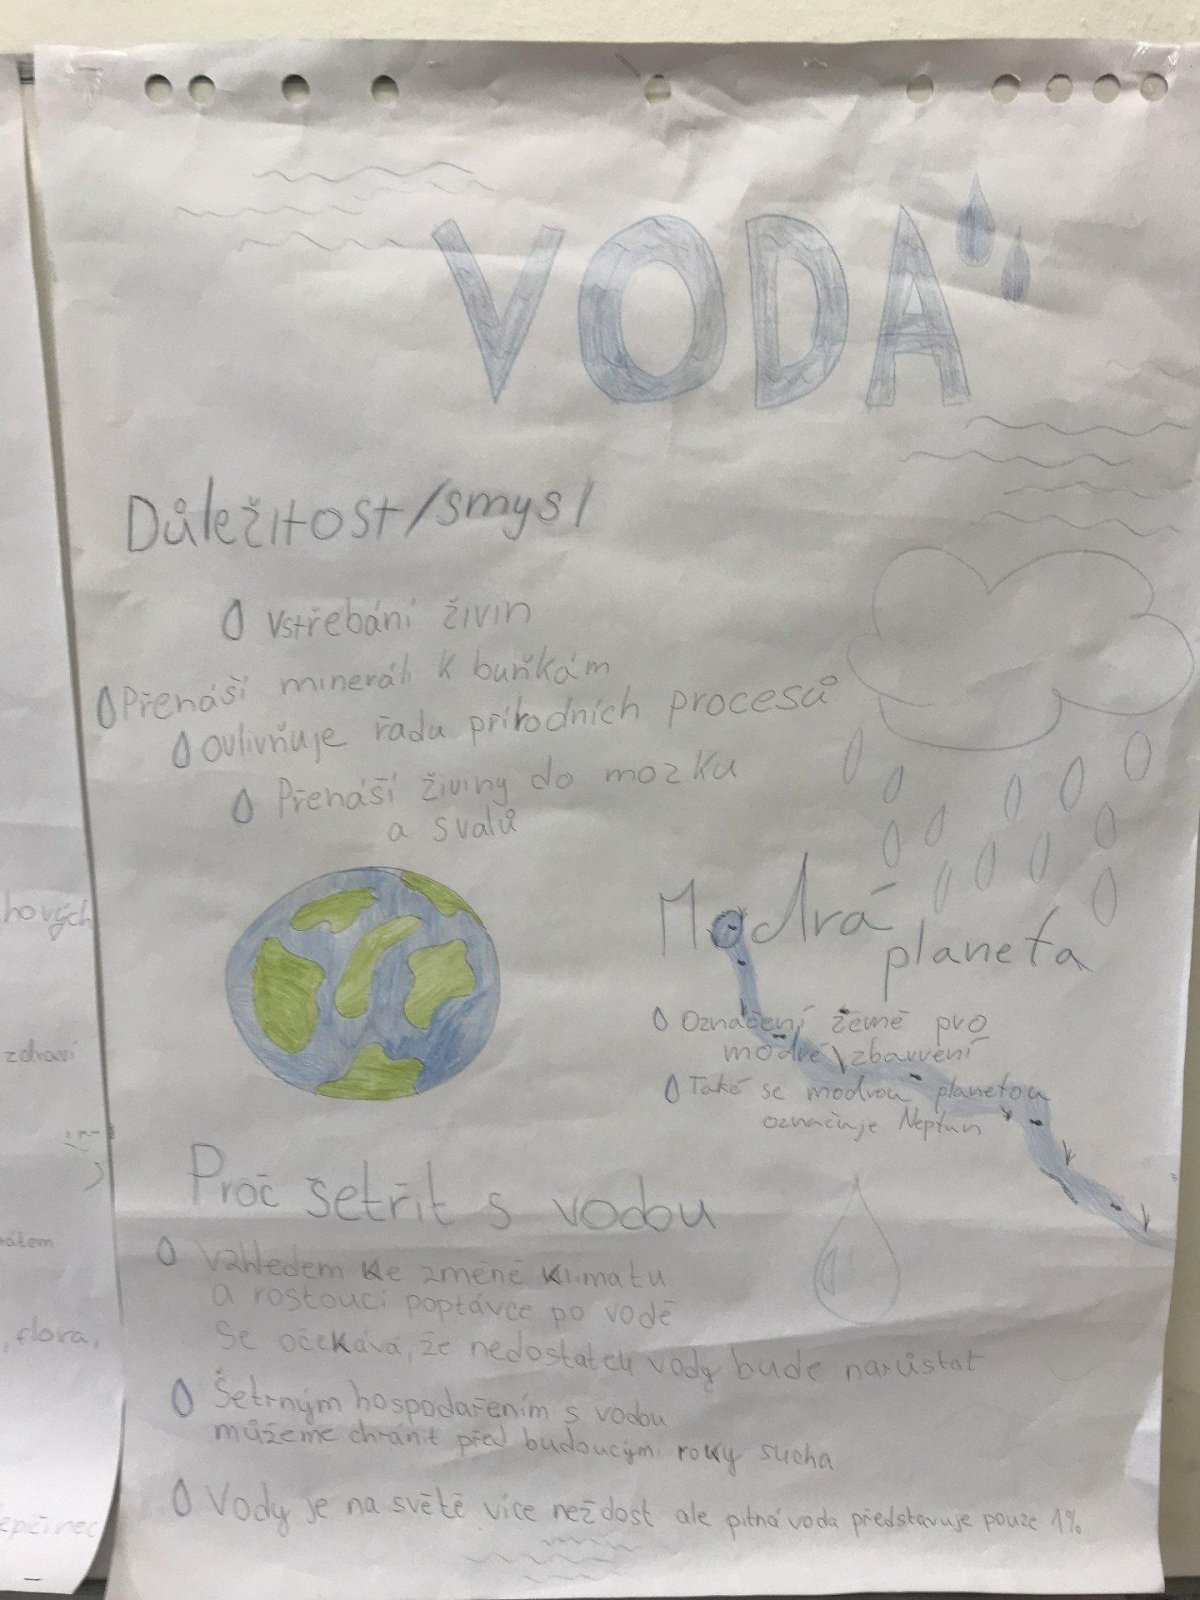 VODA
Důležitost/smysl
Vstřebání živin
Přenáší mineráli k buňkám
ovlivňuje řadu přírodních procesů
Přenáší živiny do mozku
a svalů
Modrá
planeta
Označení země pro
modré zbarvení
Také se modrou planetou
označuje Neptun
Proč šetřit s vodou
Vzhledem ke změně klimatu
a rostoucí poptávce po vodě
se očekává, že nedostatek vody bude narůstat
Šetrným hospodařením s vodou
můžeme chránit před budoucými roky sucha
Vody je na světě více než dost ale pitná voda představuje pouze 1%
hových
zdraví
, flora,